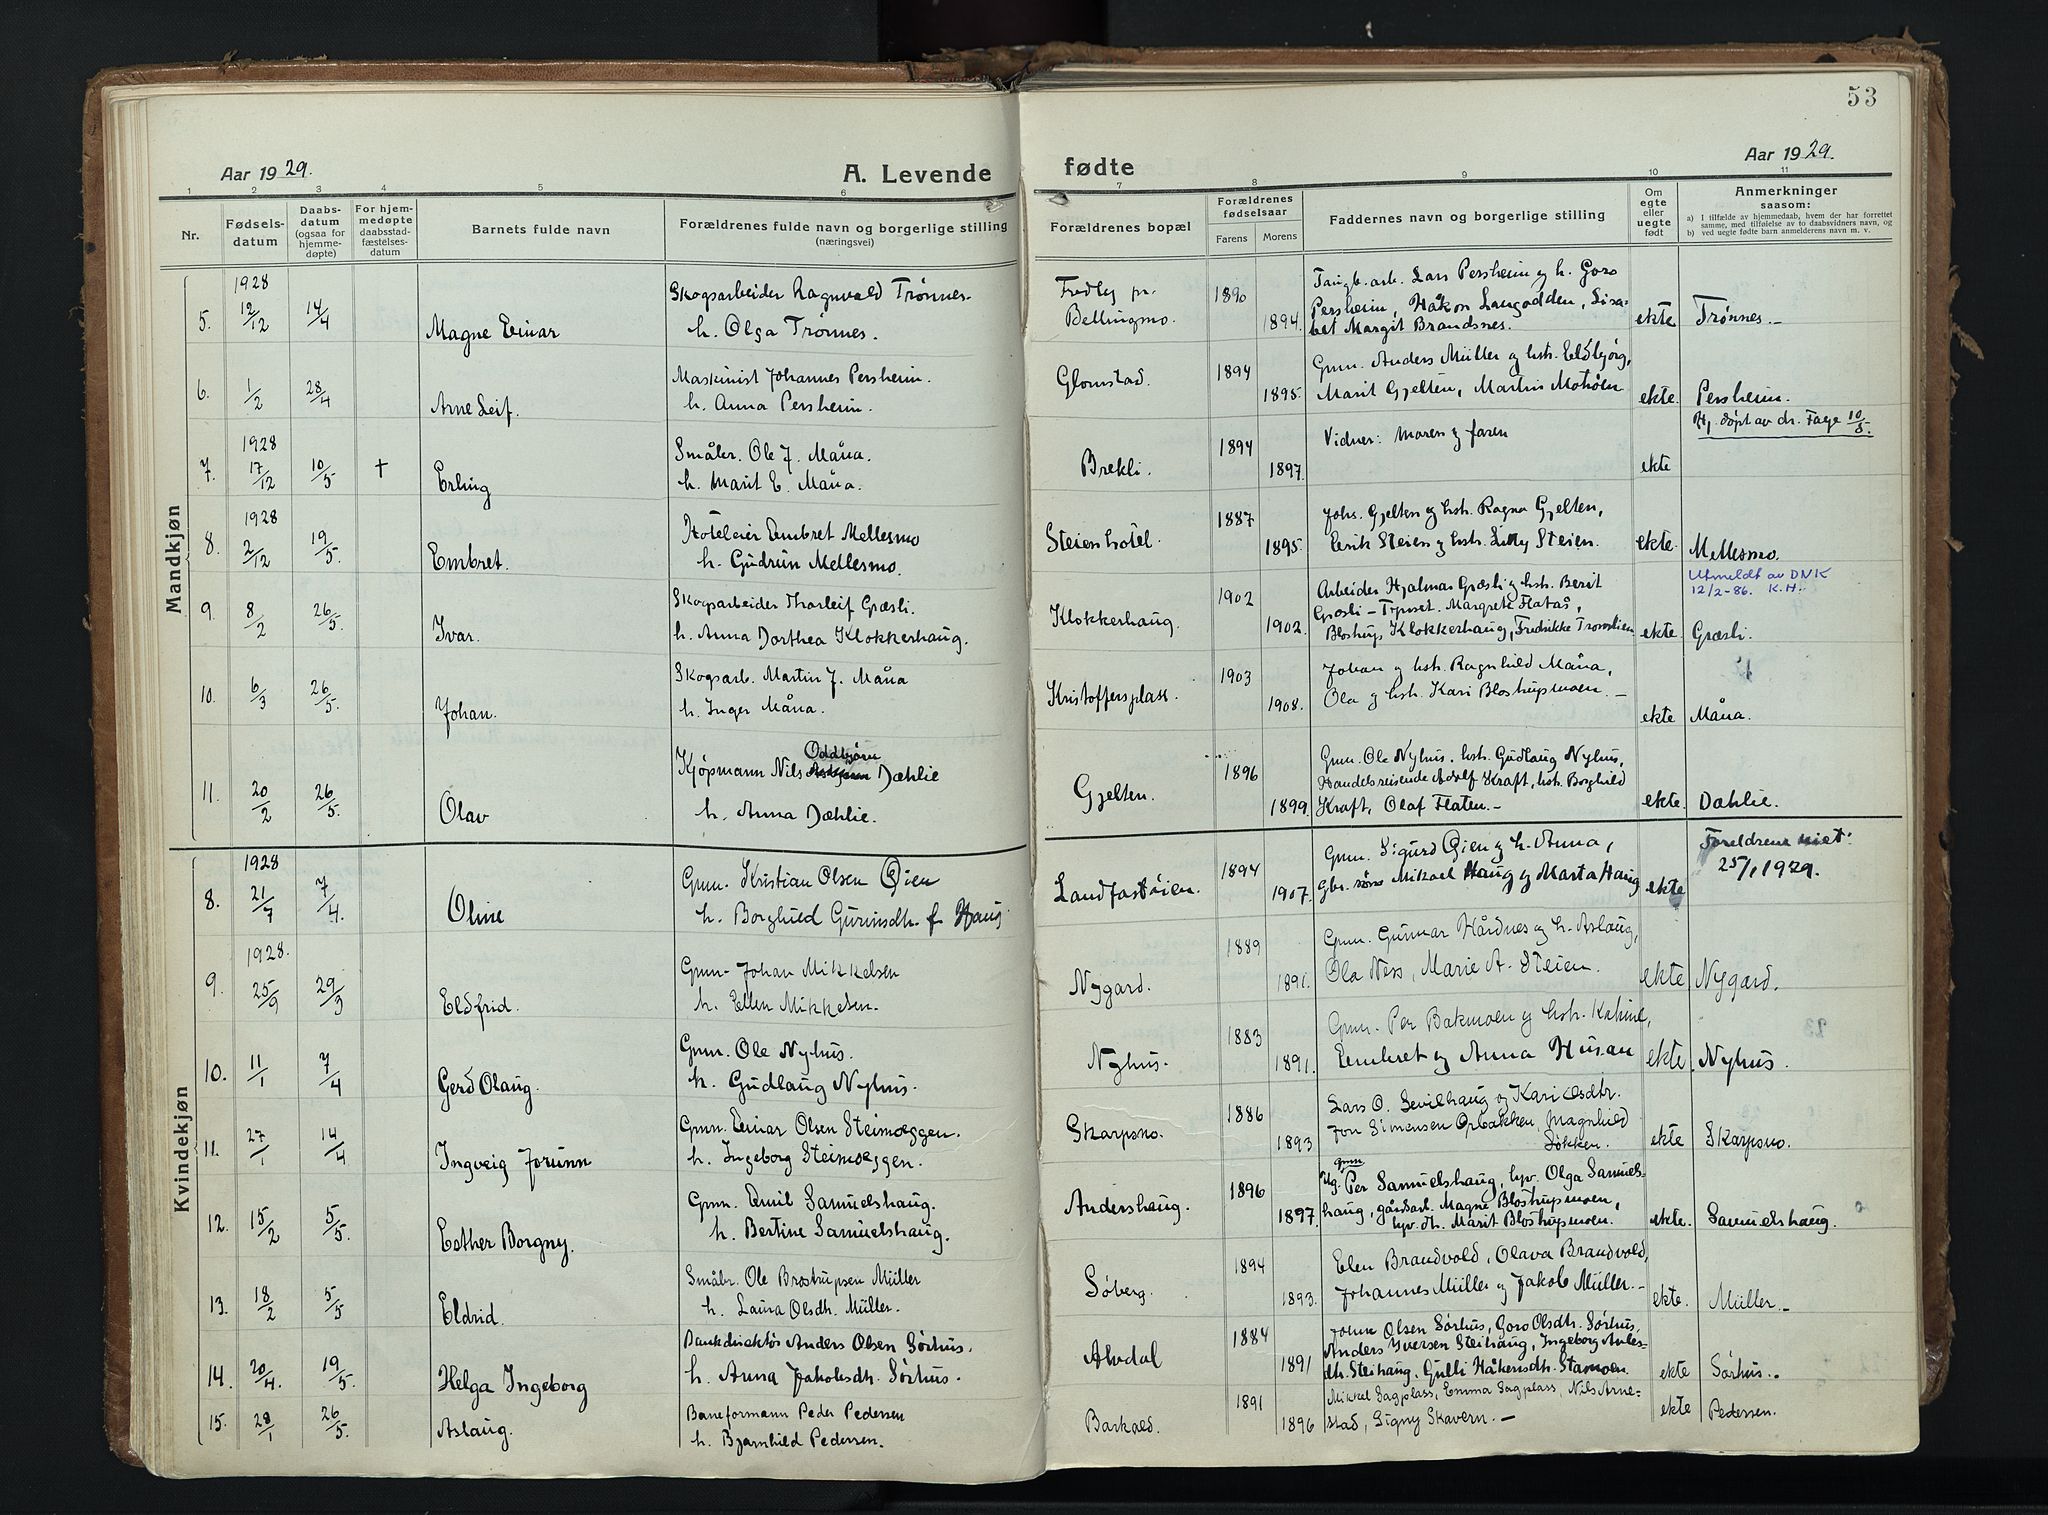 53
Aar 1929.
A. Levende
fødte
Aar 1929.
1 2 3 4 5 6 7 8 9 10 11
Nr.
Fødsels-
datum
Daabs-
datum
(ogsaa for
hjemme-
døpte)
For hjem-
medøpte
daabsstad-
fæstelses-
datum
Barnets fulde navn
Forældrenes fulde navn og borgerlige stilling
(næringsvei)
Forældrenes bopæl
Forældrenes
fødselsaar
Farens Morens
Faddernes navn og borgerlige stilling
Om
egte
eller
uegte
født
Anmerkninger
saasom:
a) I tilfælde av hjemmedaab, hvem der har forrettet
samme, med tilføielse av to daabsvidners navn, og
b) ved uegte fødte barn anmelderens navn m. v.
Mandkjøn
5. 1928 12/12 14/4 Magne Einar
Skogsarbeider Ragnvald Trønnes.
h. Olga Trønnes.
Fredly pr.
Bellingmo.
1890 1894.
Lars Persheim og h. Goro
Persheim, Håkon Langodden, Lisa-
bet Margit Brandsnes.
ekte Trønnes.-
6. 1/2 28/4 Arne Leif.
Maskinist Johannes Persheim.
h. Anna Persheim.
Glomstad.
1894 1895.
Gmn. Anders Müller og hst. Eldbjørg,
Marit Gjelten, Martin Motrøen
ekte. Persheim.
7. 1928 17/12 10/5 † Erling
Småbr. Ole J. Måna.
h. Marit E. Måna.
Brekli.
1894 1897.
Vidner: Moren og faren
ekte
Hj. døpt av dr. Fage 10/5.
8. 1928 2/12 19/5. Embret.
Hoteleier Embret Mellesmo
h. Gudrun Mellesmo.
Steien hotel.
1887 1895.
Johs. Gjelten og hst. Ragna Gjelten,
Erik Steien og hst. Lilly Steien.
ekte. Mellesmo.
Utmeldt av DNK
12/2-86. K.H.
9. 8/2 26/5. Ivar.
Skogsarbeider Thorleif Græsli.
h. Anna Dorthea Klokkerhaug.
Klokkerhaug.
1902 1902.
Arbeider Hjalmar Græsli og hst. Berit
Græsli - Tynset. Margrete Flatås,
Blostrup Klokkerhaug, Fredrikke Tronslien
ekte. Græsli.
10. 6/3 26/5. Johan.
Skogsarb. Martin J. Måna
h. Inger Måna.
Kristoffersplass.
1903 1908.
Johan og hst. Ragnhild Måna,
Ola og hst. Kari Blostrupmoen.-
ekte Måna.
11. 20/2 26/5. Olav
Oddbjørn
Kjøpmann Nils Dæhlie
h. Anna Dæhlie.
Gjelten.
1896 1899.
Gmn. Ole Nyhus, hst. Gudlaug Nyhus,
Handelsreisende Adolf Kraft, hst. Borghild
Kraft, Olaf Flaten.-
ekte. Dæhlie.
Kvindekjøn
8. 1928 21/7 7/4. Oline
Gmn. Kristian Olsen Øien
h. Borghild Gunnusdh. f. Haug.
Landfastøien.
1894 1907.
Gmn. Sigurd Øien og h. Anna,
Mikael Haug og Marta Haug
ekte
Foreldrene viet:
25/1 1929.
9. 1928. 25/9 29/3 Eldfrid.
Gmn. Johan Mikkelsen
h. Ellen Mikkelsen.
Nygard.
1889 1891.
Gmn. Gunnar Hårdnes og h. Aslaug,
Ola Ness, Marie A. Steien.
ekte Nygard.
10. 11/1 7/4 Gerd Olaug.
Gmn. Ole Nyhus.
h. Gudlaug Nyhus.
Nyhus.
1883 1891.
Gmn. Per Bakmoen og hst. Katrine,
Embret og Anna Husan
ekte. Nyhus.
11. 27/1 14/4 Ingveig Jorunn
Gmn. Einar Olsen Steimoeggen.
h. Ingeborg Steimoeggen.
Skarpsno.
1886 1893
Lars O. Sevilhaug og Kari Olsdtr.
Jon Simensen Opbakken, Magnhild
Søkken.
ekte Skarpsno.
12. 15/2 5/5. Esther Borgny.
Gmn. Emil Samuelshaug.
h. Bertine Samuelshaug.
Andershaug.
1896 1897.
gmn.
Ug. Per Samuelshaug, hpv. Olga Samuels-
haug, gårdsarb. Magne Blostrupmoen,
hpv. th. Marit Blostrupmoen.
ekte. Samuelshaug.
13. 18/2 5/5 Eldrid.
Småbr. Ole Brostrupsen Müller
h. Laura Olsdh. Müller.
Søberg.
1894 1893.
Elen Brandvold, Olava Brandvold,
Johannes Müller og Jakob Müller.-
ekte. Müller.-
14. 20/4. 19/5. Helga Ingeborg
Bankdirektør Anders Olsen Sørhus.
h. Anna Jakobsdh. Sørhus.
Alvdal
1884 1891
Johan Olsen Sørhus, Goro Olsdh. Sørhus,
Anders Iversen Steihaug, Ingeborg Anders-
dh. Steihaug, Gulli Håkensdh. Stamoen.
ekte Sørhus.
15. 28/1 26/5. Aslaug.
Baneformann Peder Pedersen
h. Bjarnhild Pedersen.
Barkald.
1891 1896
Mikkel Sagplass, Emma Sagplass, Nils Arne-
stad, Signy Skavern.-
ekte Pedersen.